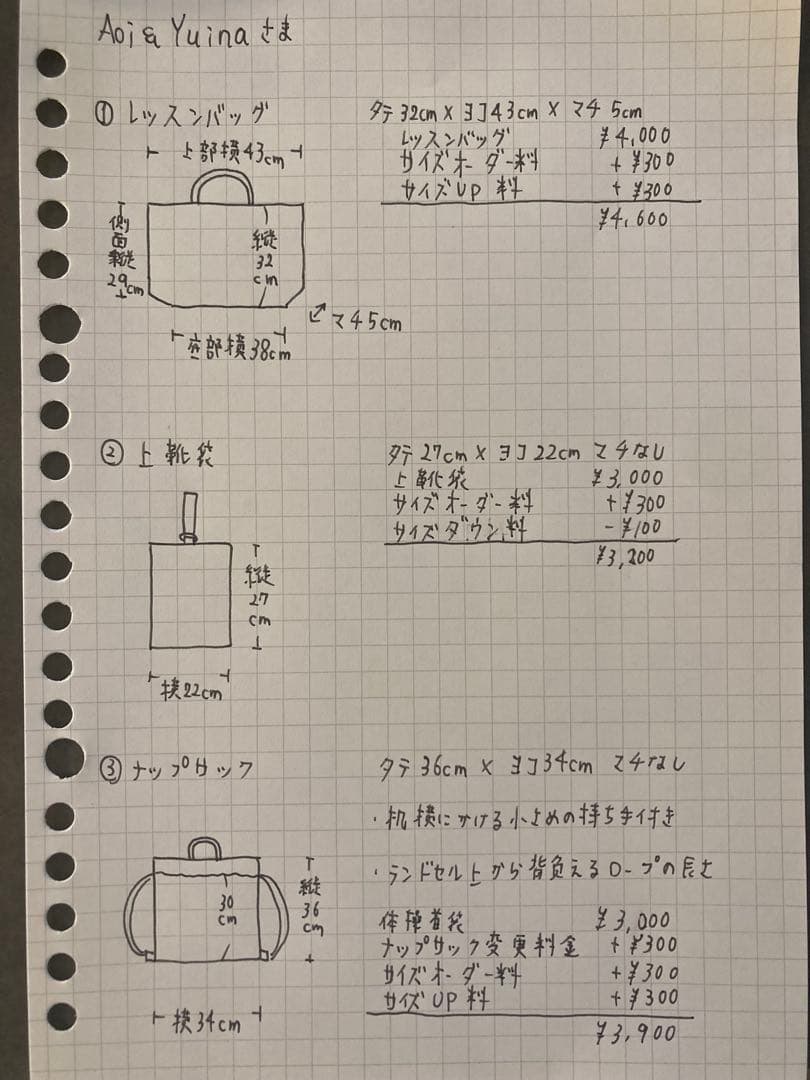 Aoi & Yuina さま
① レッスンバッグ
タテ 32cm × ヨコ 43cm × マチ 5cm
レッスンバッグ ¥4,000
サイズオーダー料 +¥300
サイズUP 料 +¥300
¥4,600
上部横43cm
側面縦29cm
縦32cm
マチ5cm
底部横38cm
② 上靴袋
タテ 27cm × ヨコ 22cm マチなし
上靴袋 ¥3,000
サイズオーダー料 +¥300
サイズダウン料 -¥100
¥3,200
縦27cm
横22cm
③ ナップサック
タテ 36cm × ヨコ34cm マチなし
・机横にかける小さめの持ち手付き
・ランドセル上から背負えるロープの長さ
体操着袋 ¥3,000
ナップサック変更料金 +¥300
サイズオーダー料 +¥300
サイズUP 料 +¥300
¥3,900
30cm
縦36cm
横34cm